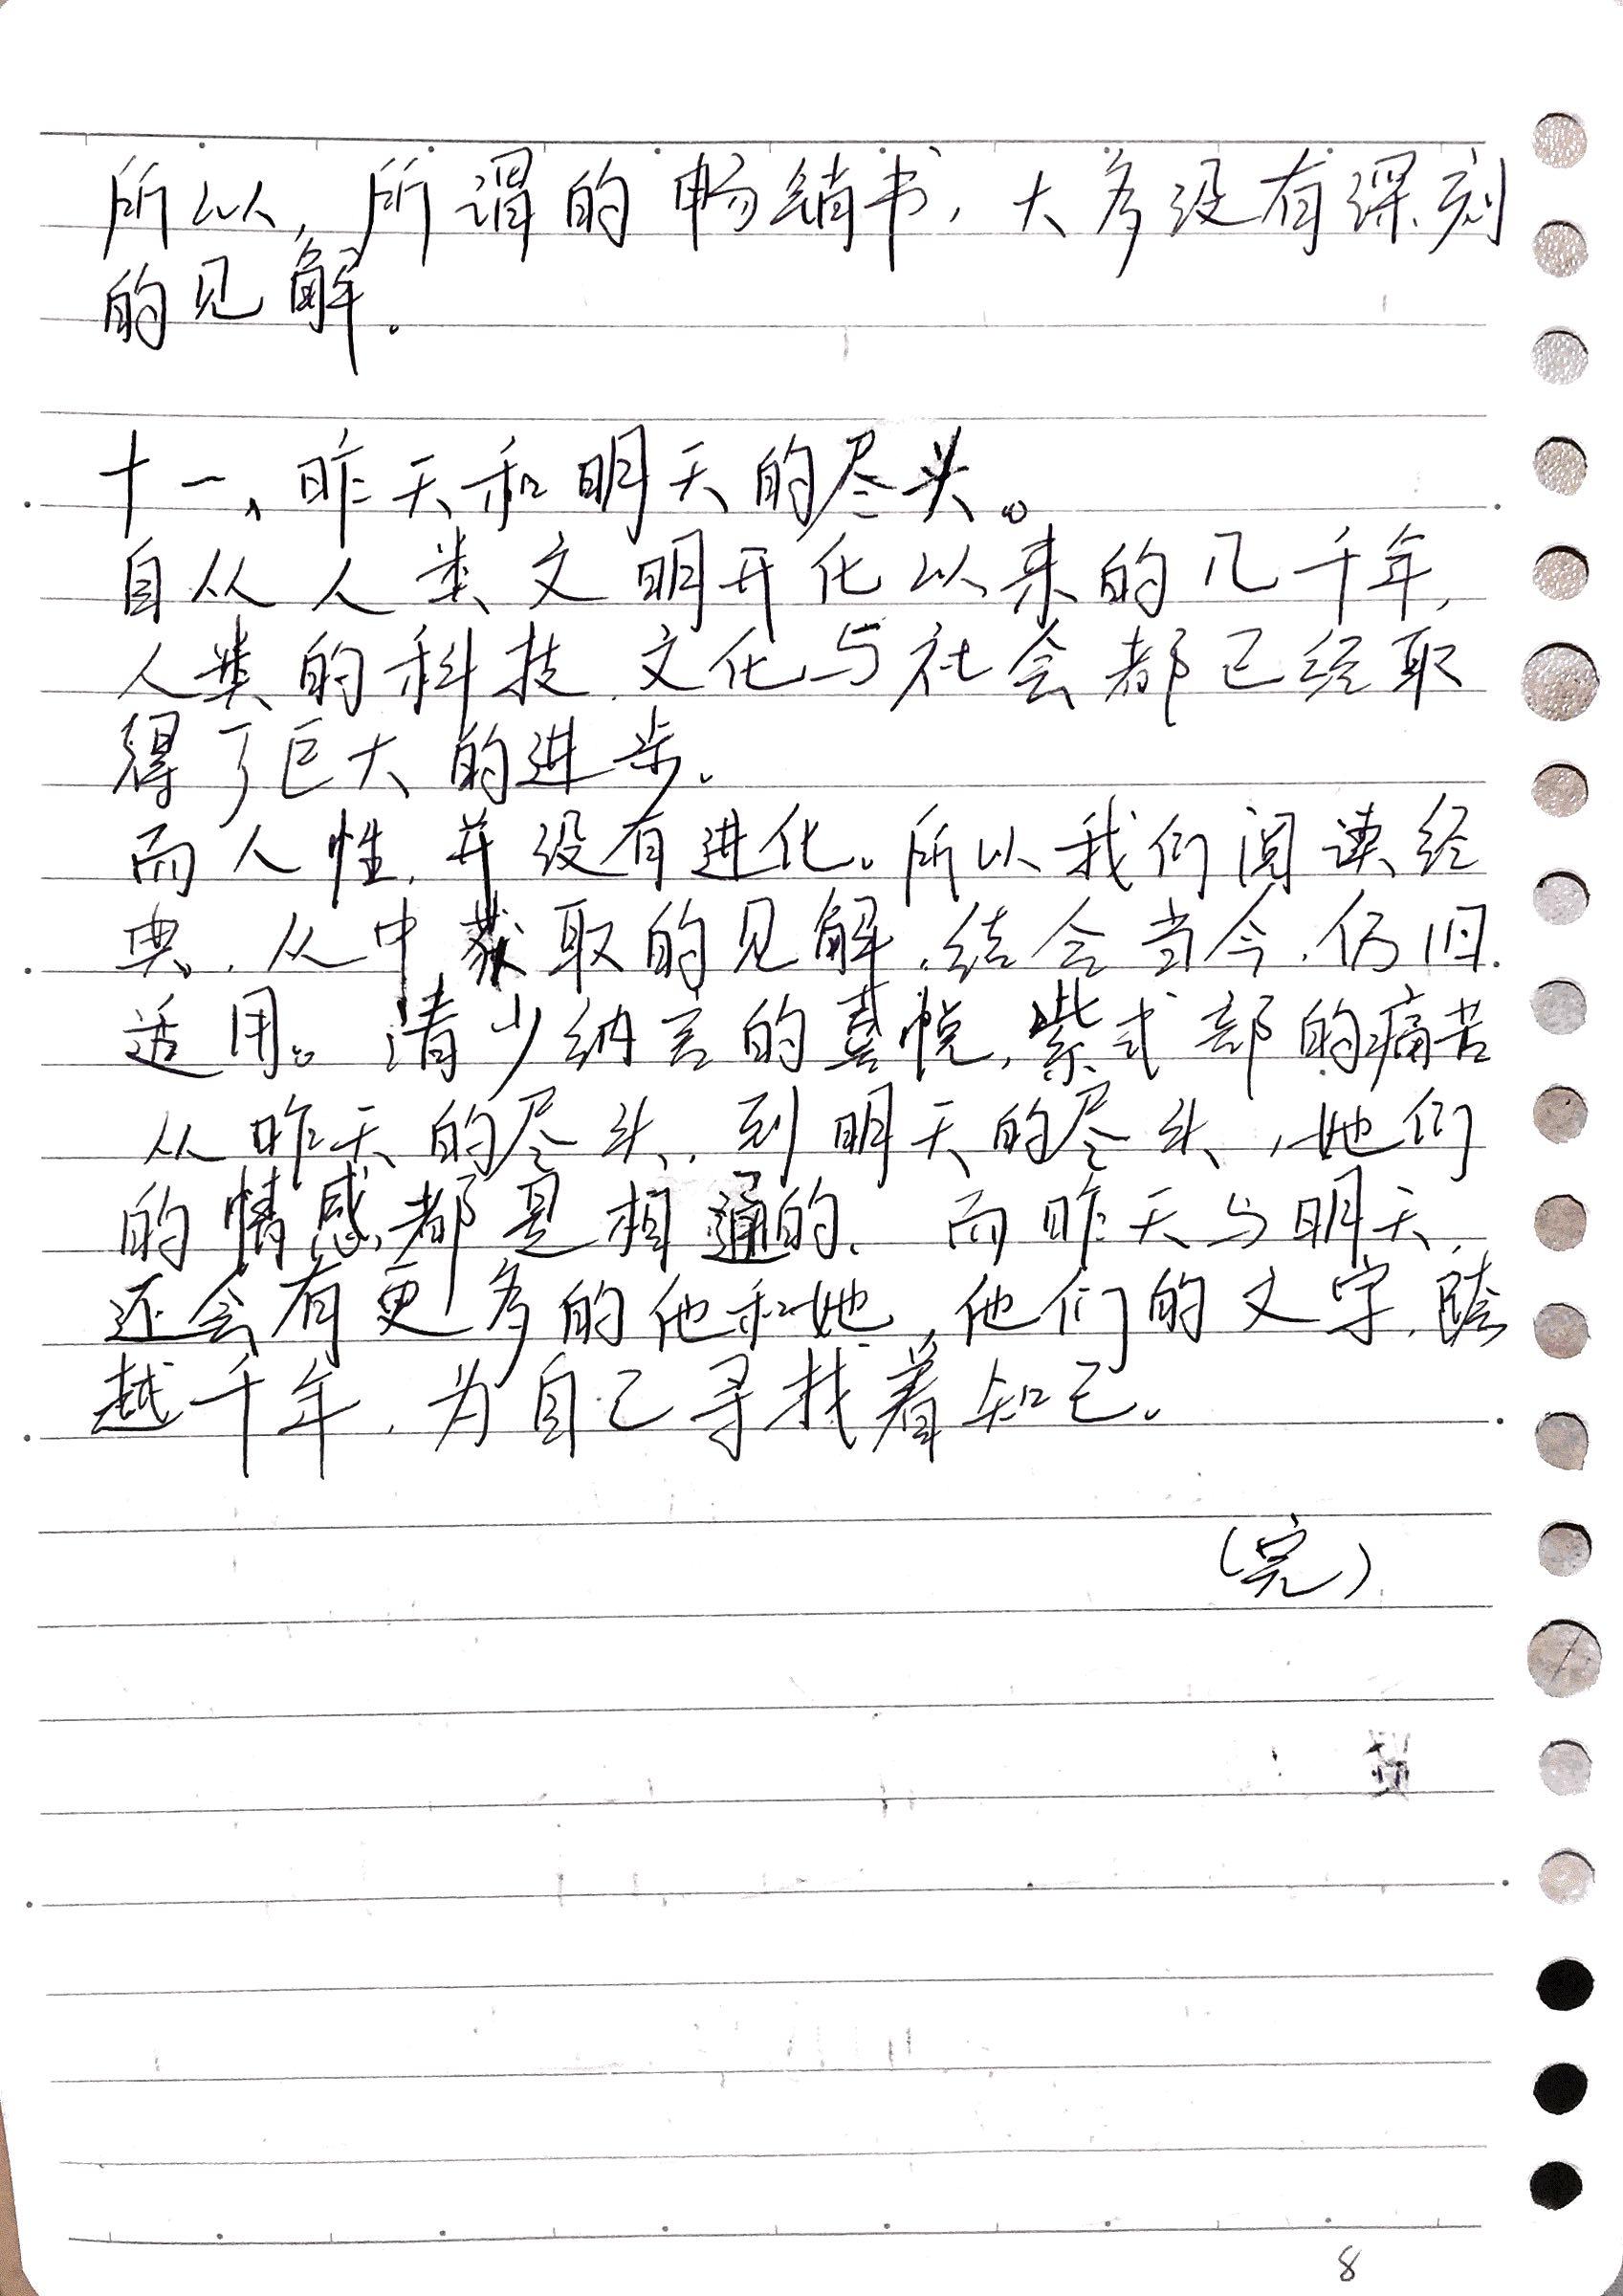 所以，所谓的畅销书，大多没有深刻
的见解。
十一、昨天和明天的尽头。
自从人类文明开化以来的几千年，
人类的科技、文化与社会都已经取
得了巨大的进步。
而人性，并没有进化。所以我们阅读经
典，从中获取的见解，结合当今，仍旧
适用。清少纳言的喜悦，紫式部的痛苦
从昨天的尽头，到明天的尽头，她们
的情感都是相通的。而昨天与明天，
还会有更多的他和她，他们的文字，跨
越千年，为自己寻找着知己。
（完）
8